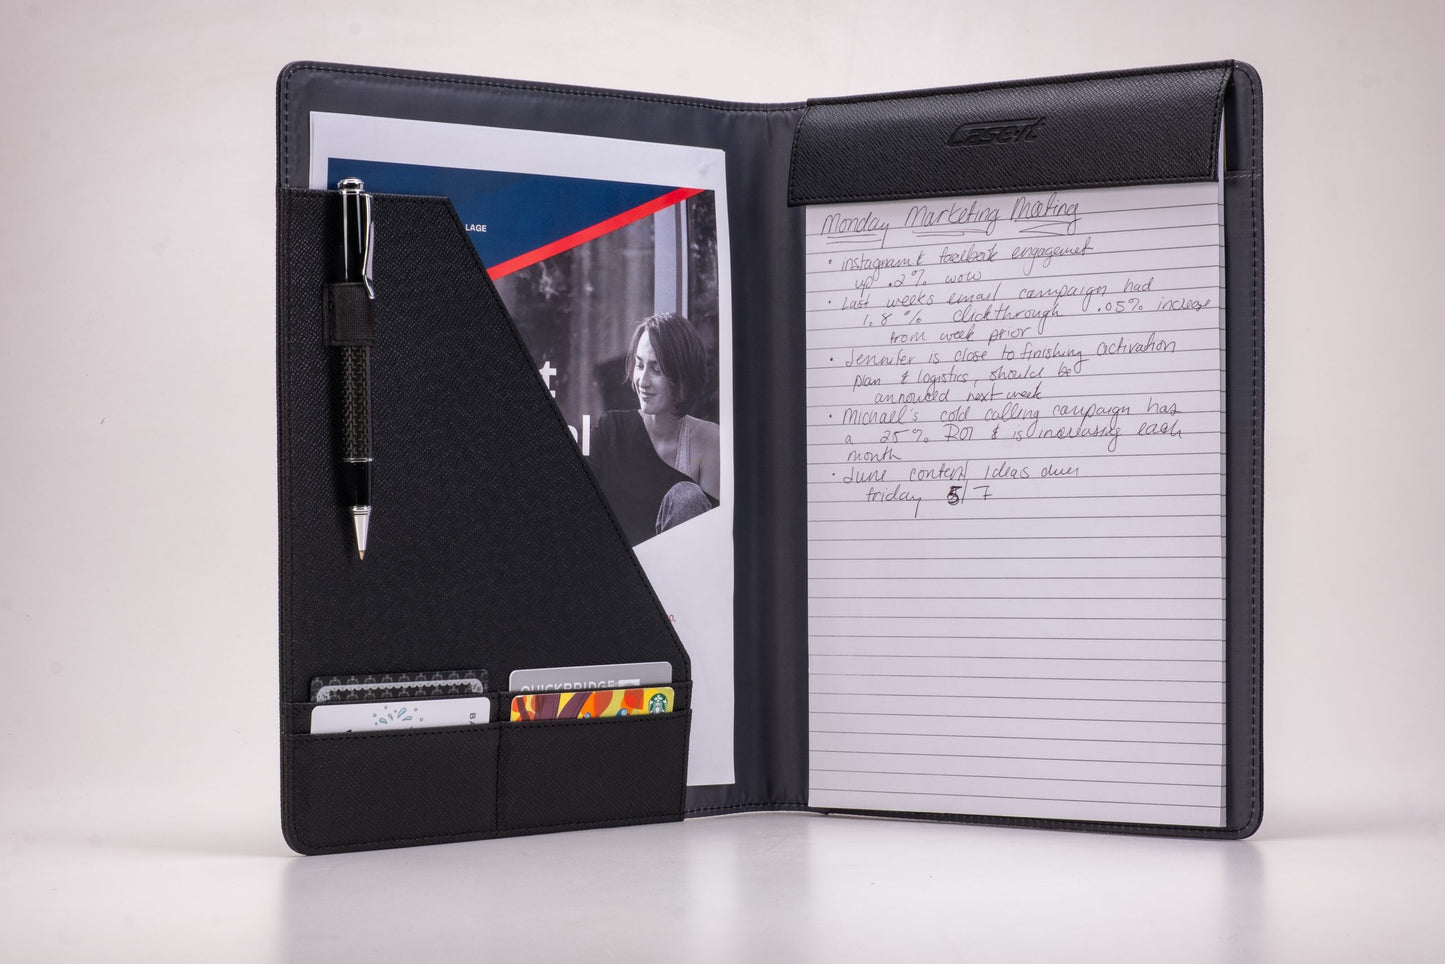 LAGE
t
al
o.
BA
QUICKBRIDGE
Casen
Monday Marketing Meeting
• instagram & facebook engagemet
up .2% wow
• Last weeks email campaign had
1.8% clickthrough .05% increase
from week prior
• Jennifer is close to finishing activation
plan & logistics, should be
annouced next week
• Michael's cold calling campaign has
a 25% ROI & is increasing each
month
• June content ideas due
friday 5/7